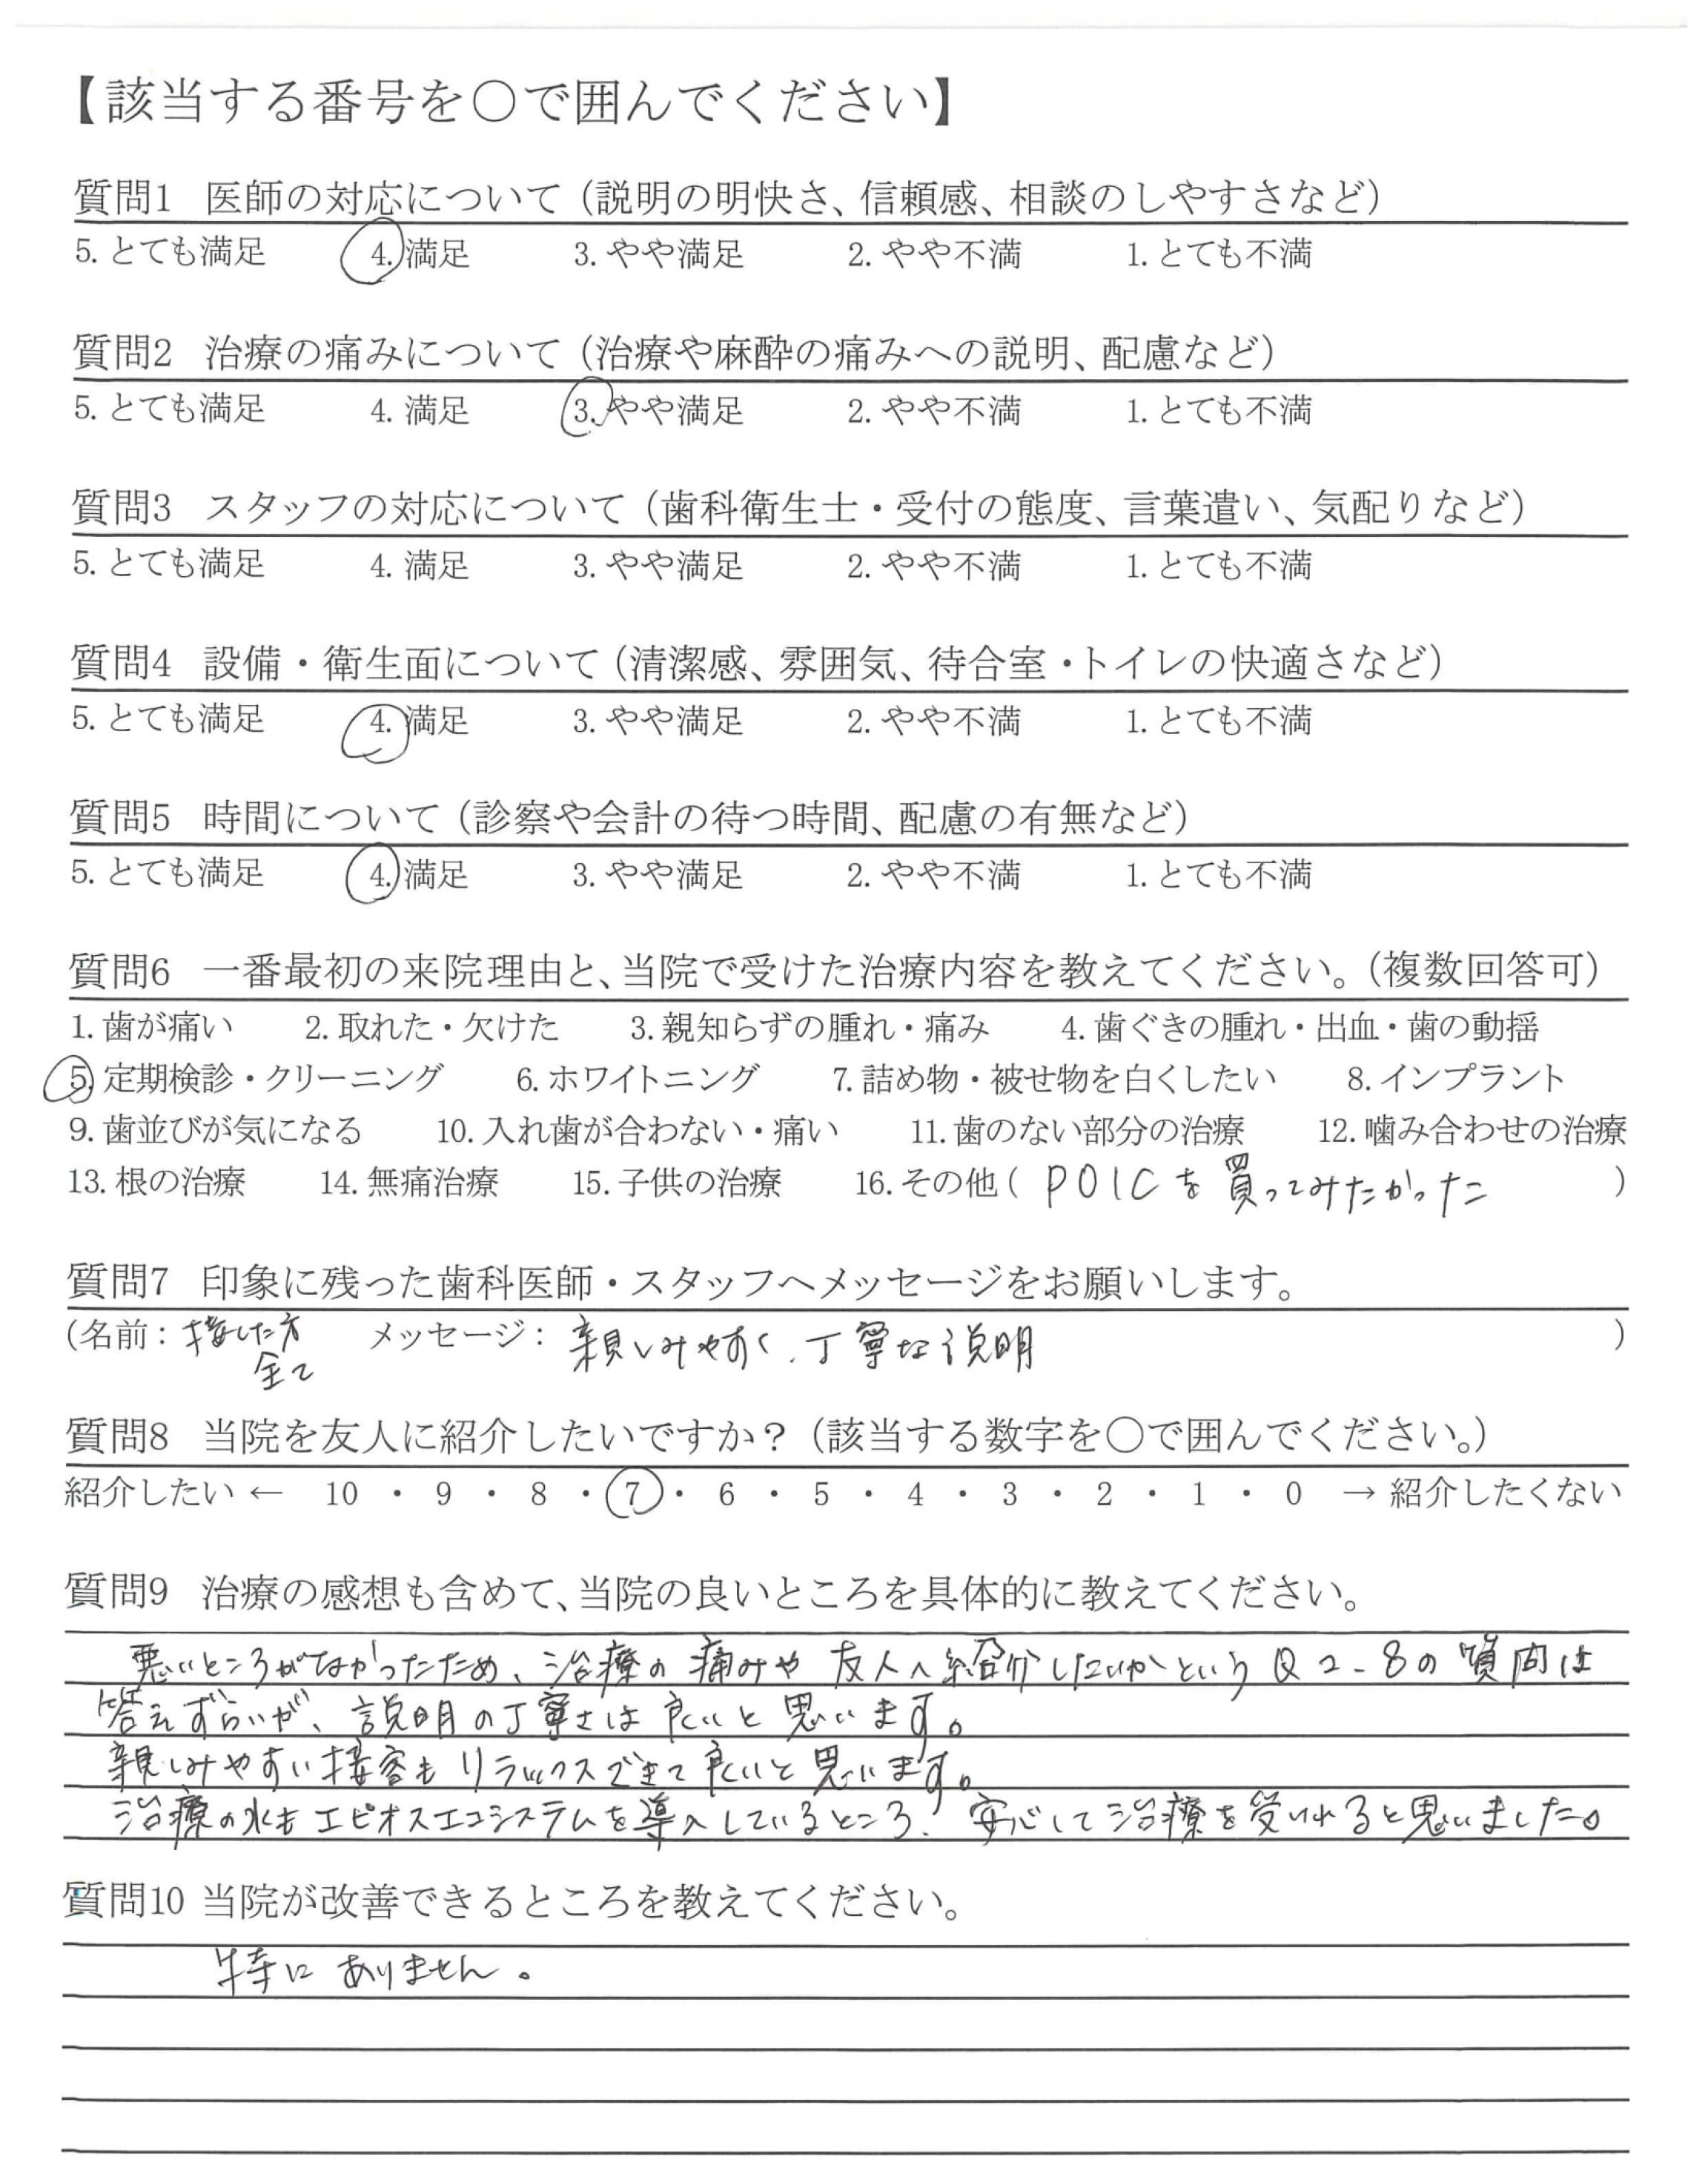 【該当する番号を○で囲んでください】
質問1 医師の対応について（説明の明快さ、信頼感、相談のしやすさなど）
5. とても満足 4. 満足 3. やや満足 2. やや不満 1. とても不満
質問2 治療の痛みについて（治療や麻酔の痛みへの説明、配慮など）
5. とても満足 4. 満足 3. やや満足 2. やや不満 1. とても不満
質問3 スタッフの対応について（歯科衛生士・受付の態度、言葉遣い、気配りなど）
5. とても満足 4. 満足 3. やや満足 2. やや不満 1. とても不満
質問4 設備・衛生面について（清潔感、雰囲気、待合室・トイレの快適さなど）
5. とても満足 4. 満足 3. やや満足 2. やや不満 1. とても不満
質問5 時間について（診察や会計の待つ時間、配慮の有無など）
5. とても満足 4. 満足 3. やや満足 2. やや不満 1. とても不満
質問6 一番最初の来院理由と、当院で受けた治療内容を教えてください。（複数回答可）
1. 歯が痛い 2. 取れた・欠けた 3. 親知らずの腫れ・痛み 4. 歯ぐきの腫れ・出血・歯の動揺
5. 定期検診・クリーニング 6. ホワイトニング 7. 詰め物・被せ物を白くしたい 8. インプラント
9. 歯並びが気になる 10. 入れ歯が合わない・痛い 11. 歯のない部分の治療 12. 噛み合わせの治療
13. 根の治療 14. 無痛治療 15. 子供の治療 16. その他（ POICを買ってみたかった ）
質問7 印象に残った歯科医師・スタッフへメッセージをお願いします。
（名前： 接した方 メッセージ： 親しみやすく、丁寧な説明 ）
全て
質問8 当院を友人に紹介したいですか？（該当する数字を○で囲んでください。）
紹介したい ← 10 ・ 9 ・ 8 ・ 7 ・ 6 ・ 5 ・ 4 ・ 3 ・ 2 ・ 1 ・ 0 → 紹介したくない
質問9 治療の感想も含めて、当院の良いところを具体的に教えてください。
悪いところがなかったため、治療の痛みや友人へ紹介したいかというQ2-8の質問は
答えずらいが、説明の丁寧さは良いと思います。
親しみやすい接客もリラックスできて良いと思います。
治療の水もエピオスエコシステムを導入しているところ、安心して治療を受けれると思いました。
質問10 当院が改善できるところを教えてください。
特にありません。